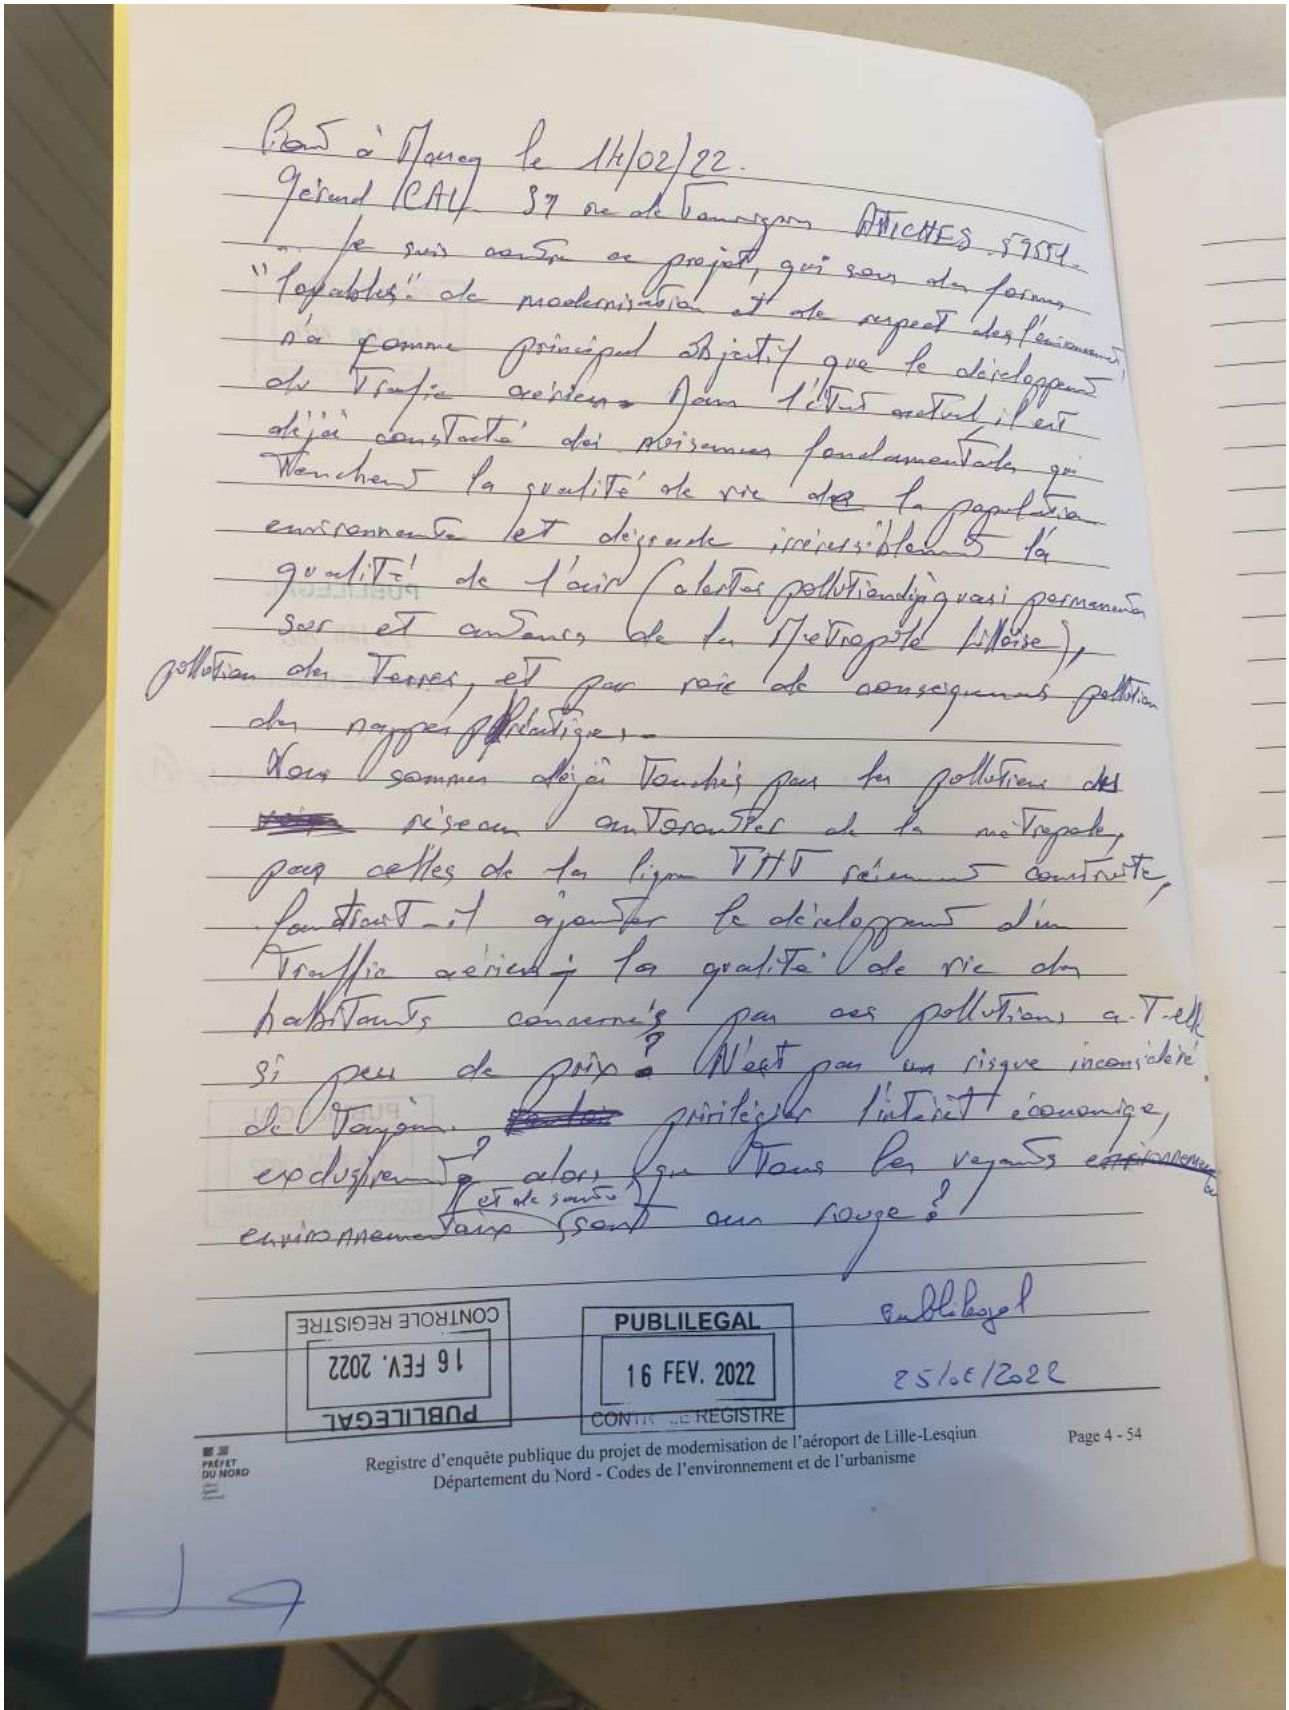 à le 14/02/22.
Gérard CAU 37 rue de ATTICHES 59551.
Je suis contre ce projet, qui sous des formes
"loyables" de modernisation et de respect des l'environnement,
n'a comme principal objectif que le développent
du Trafic aérien. Dans l'état actuel, il est
déjà constaté des nuisances fondamentales qui
Touchent la qualité de vie de la population
environnante et dégrade irréversiblement la
qualité de l'air (alertes pollution déjà quasi permanentes
sur et autours de la Métropole Lilloise),
pollution des Terres, et par voie de consequences pollution
des nappes phréatiques.
Nous sommes déjà Touchés par les pollutions des
réseau autoroutier de la métropole,
par celles de la ligne THT construite,
faudrait-il ajouter le développent d'un
Traffic aérien; la qualité de vie des
habitants concernés par ces pollutions a-T-elle
si peu de prix? N'est pas un risque inconsidéré
de Toujours privilégier l'intérêt économique,
exclusivement? alors que Tous les voyants
environnementaux (et de santé) sont au rouge?
CONTROLE REGISTRE
16 FEV. 2022
PUBLILEGAL
PUBLILEGAL
16 FEV. 2022
CONTROLE REGISTRE
Publilegal
2022
PRÉFET
DU NORD
Registre d'enquête publique du projet de modernisation de l'aéroport de Lille-Lesqiun
Département du Nord - Codes de l'environnement et de l'urbanisme
Page 4 - 54